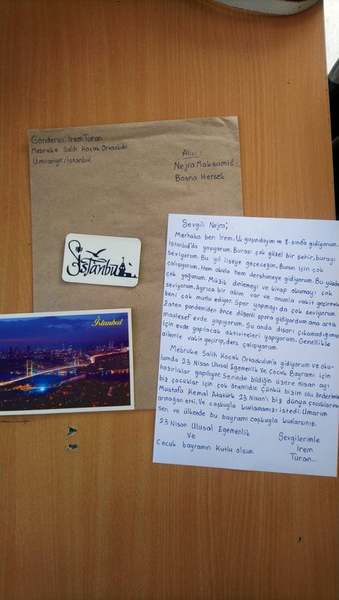 Gönderici: İrem Turan
Mebruke Salih Koçak Ortaokulu
Ümraniye/İstanbul
Alıcı:
Nejra Maksumić
Bosna Hersek
İstanbul
İstanbul
Sevgili Nejra;
Merhaba ben İrem. 14 yaşındayım ve 8. sınıfa gidiyorum.
İstanbul'da yaşıyorum. Burası çok güzel bir şehir, burayı
seviyorum. Bu yıl liseye geçeceğim. Bunun için çok
çalışıyorum. Hem okula hem dershaneye gidiyorum. Bu yüzden
çok yoğunum. Müzik dinlemeyi ve kitap okumayı çok
seviyorum. Ayrıca bir ailem var ve onunla vakit geçirmek
beni çok mutlu ediyor. Spor yapmayı da çok seviyorum.
Zaten pandemiden önce düzenli spora gidiyordum ama artık
maalesef evde yapıyorum. Şu anda dışarı çıkamadığımız
için evde yapılacak aktiviteleri yapıyorum. Genellikle
ailemle vakit geçirip, ders çalışıyorum.
Mebruke Salih Koçak Ortaokulun'a gidiyorum ve oku-
lumda 23 Nisan Ulusal Egemenlik Ve Çocuk Bayramı için
hazırlıklar yapılıyor. Seninde bildiğin üzere Nisan ayı
biz çocuklar için çok önemlidir. Çünkü bizim ulu önderimiz
Mustafa Kemal Atatürk 23 Nisan'ı biz dünya çocuklarına
armağan etti. Ve coşkuyla kutlamamızı istedi. Umarım
sen ve ülkende bu bayramı coşkuyla kutlarsınız.
23 Nisan Ulusal Egemenlik
Ve
Çocuk bayramın Kutlu olsun
Sevgilerimle
İrem
Turan...